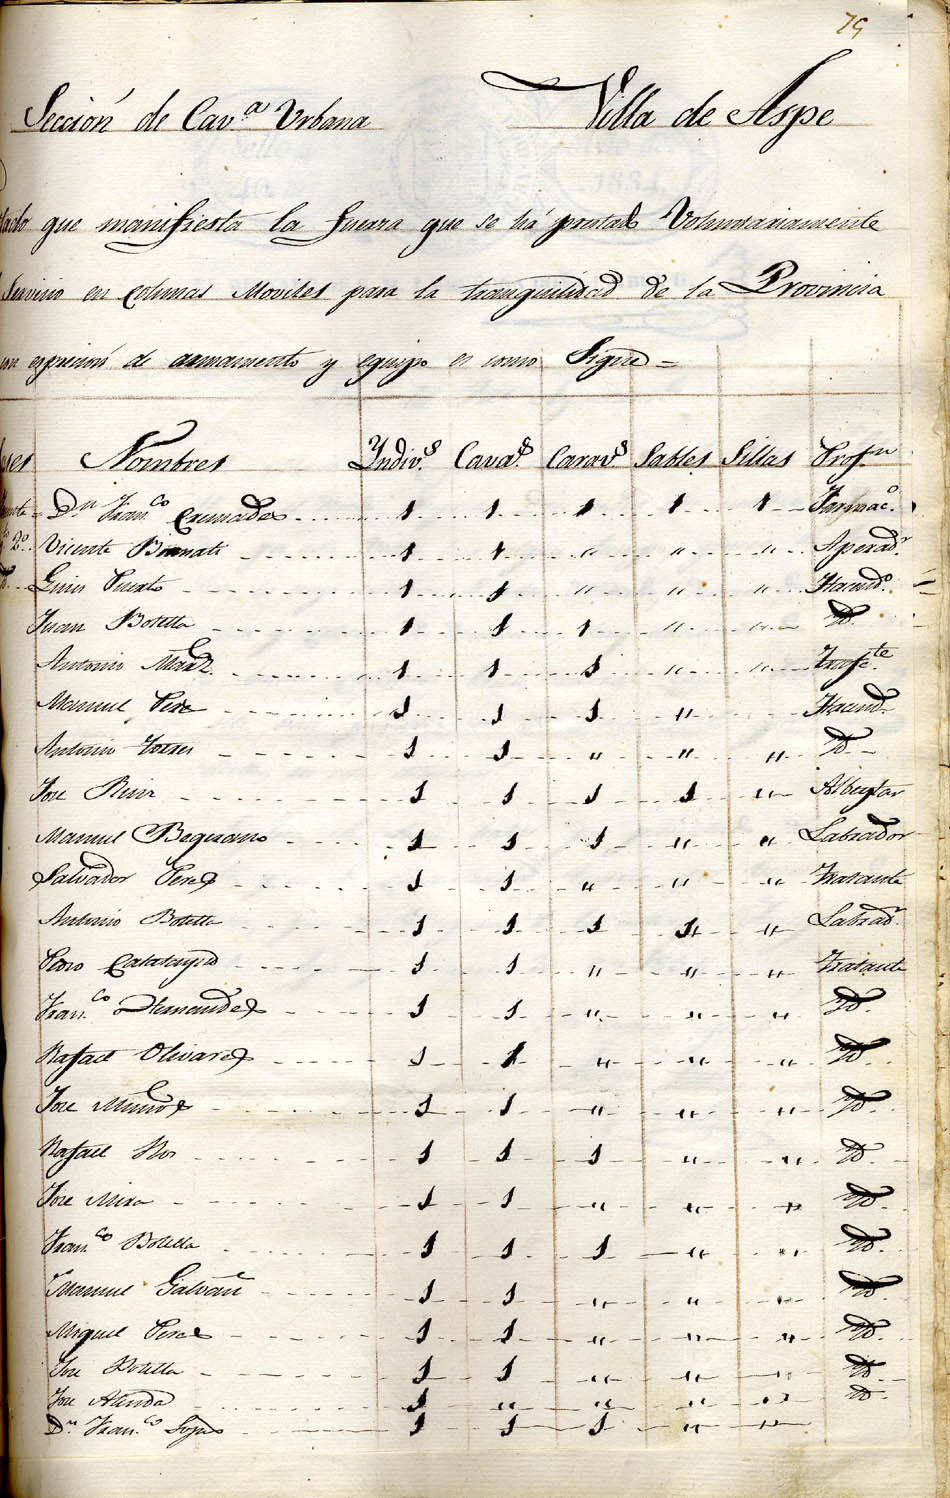 75
Sección de Cav.ª Urbana Villa de Aspe
que manifiesta la fuerza que se há prestado Voluntariamente
Servicio en columnas Moviles para la tranquilidad de la Provincia
con expresion de armamento y equipo es como Sigue =
Nombres Yndiv.s Cava.s Carav.s Sables Sillas Prof.n
Dn Fran.co Cremades 1 1 1 1 1 Farmac.o
2.o Vicente 1 1 " " " Aperad.r
Gines Puerto 1 1 " " " Hacend.o
Juan Botella 1 1 1 " " Yd.
Antonio Marz. 1 1 1 " " Trafc.te
Manuel Perez 1 1 1 " Hacend.
Antonio Torres 1 1 " " " Yd.
Jose 1 1 1 1 " Albeytar
Manuel Begerano 1 1 1 " " Labrador
Salvador Peres 1 1 " " " Tratante
Antonio Botella 1 1 1 1 " Labrad.r
Pedro Calatayud 1 1 " " " Tratante
Fran.co Hernandes 1 1 " " " Yd.
Rafael Olivares 1 1 " " " Yd.
Jose Muños 1 1 " " " Yd.
Rafael 1 1 1 " " Yd.
Jose Mira 1 1 " " " Yd.
Fran.co Botella 1 1 1 " " Yd.
Manuel Galvañ 1 1 " " " Yd.
Miguel Peres 1 1 " " " Yd.
Jose Botella 1 1 " " " Yd.
Jose 1 " " " " Yd.
Dn Fran.co 1 1 1 " "